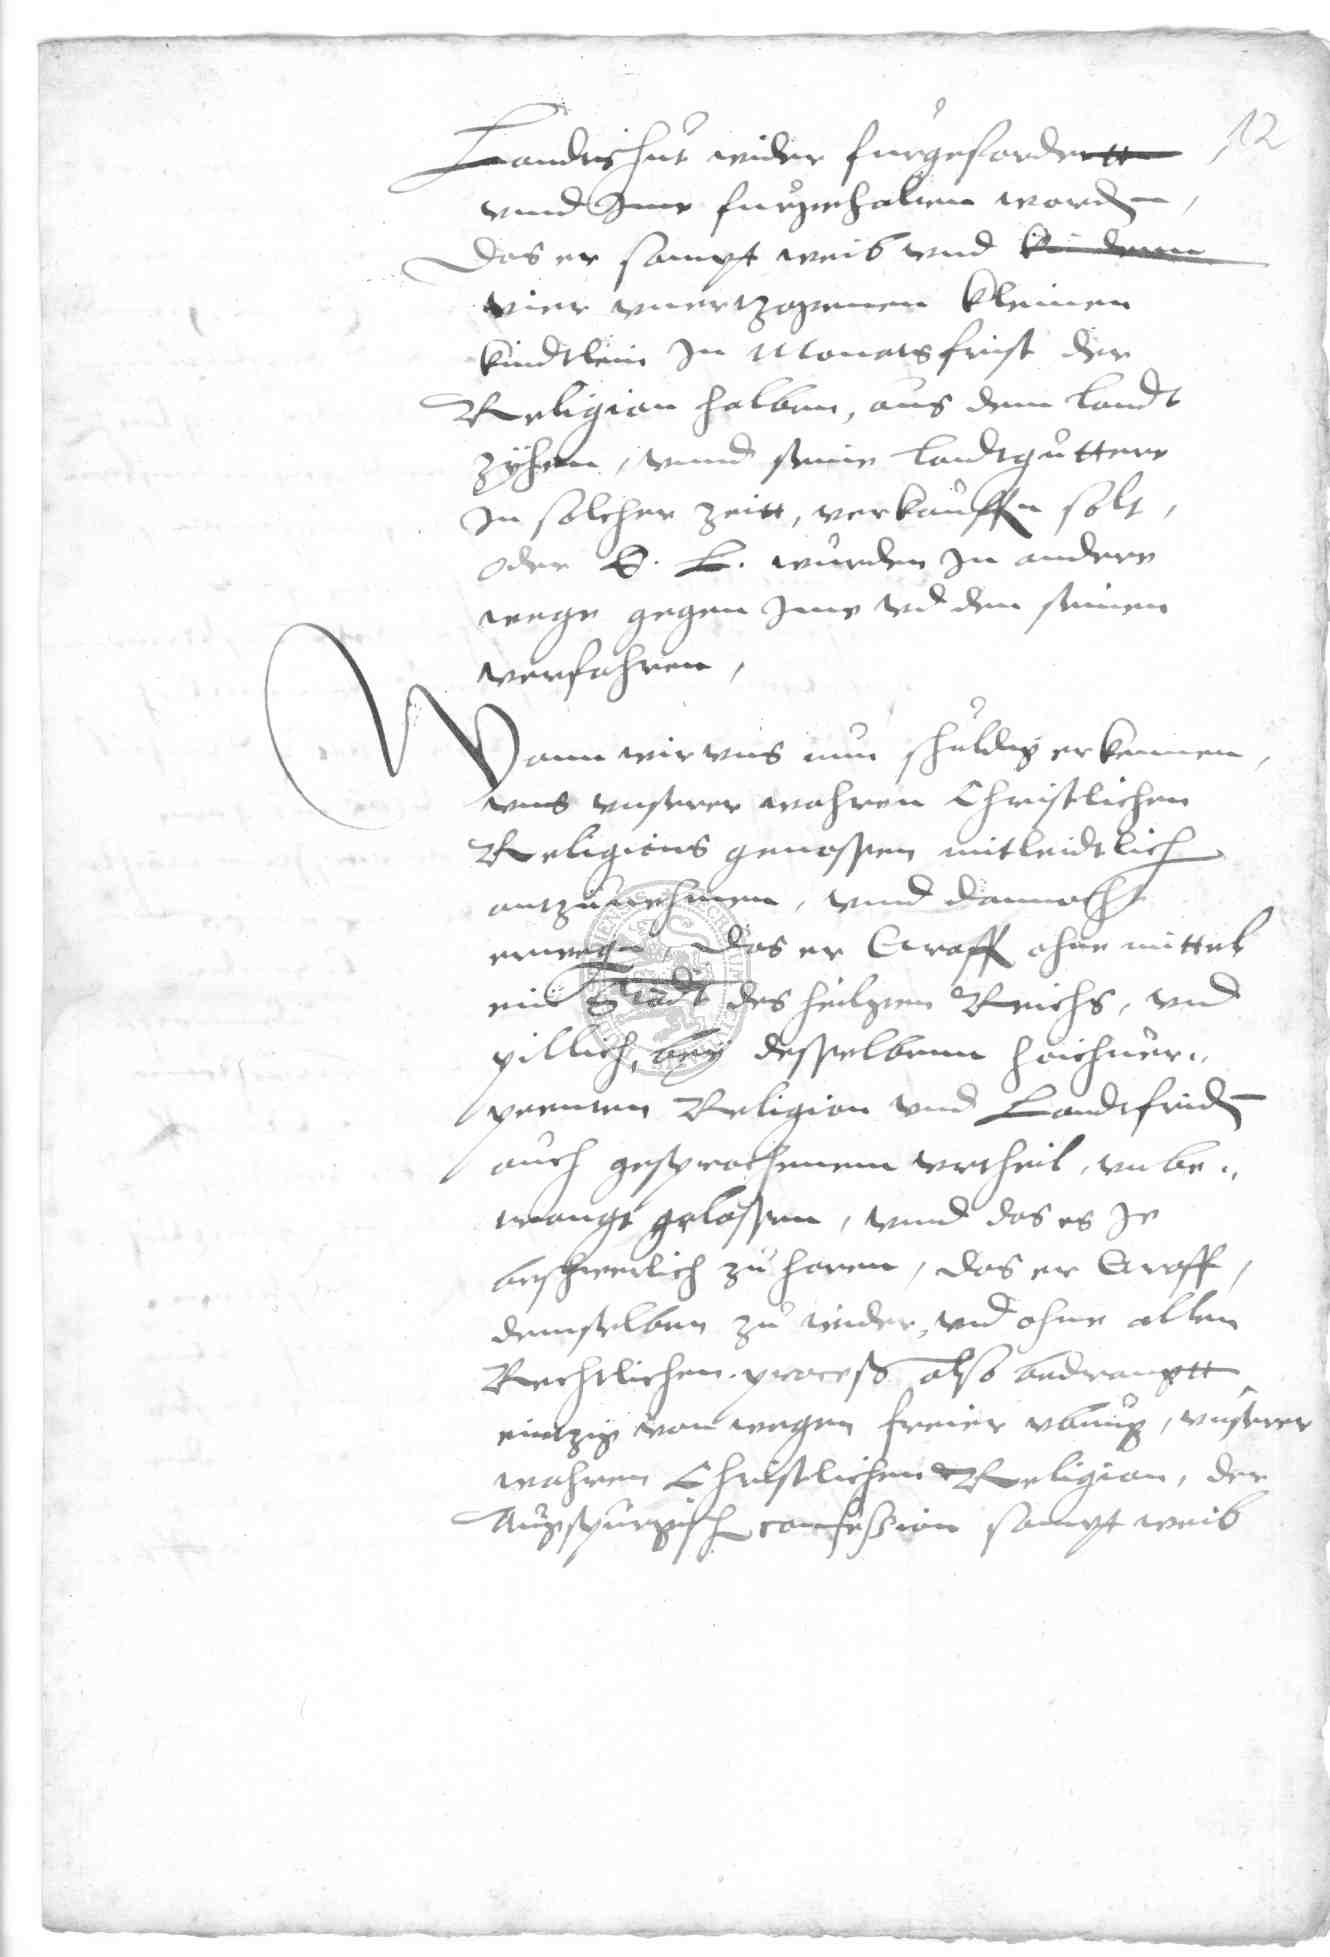 12
Landtshut wider furgefordertt
vnnd Ime furgehalten worden,
Das er sampt weib vnd kindern
vier vnertzogenen kleinen
kindtlein In Monats frist der
Religion halben, aus dem landt
zÿhen, vnnd seine landtguttere
In solcher zeitt, verkauffen solt,
oder E. L. wurden In andere
wege gegen Ime vnd den seinen
verfahren,
Wann wir vns nun schuldig erkennen,
vns vnserer wahren Christlichen
Religions genossen mitleidtlich
antzunehmen, vnnd dannocht
erwegen, Das er Graff ohne mittel
ein Stadt des heilgen Reichs, vnd
pillich, bey desselbenn hochuer„
peenten Religion vnd Landtfriden
auch gesprochenem vrtheil, vnbe„
trangt gelassen, vnnd das es Je
beschwerlich zu horen, das er Graff,
demselben zu wider, vnd ohne allen
Rechtlichen process also bedrangtt
eintzig von wegen freier vbung, vnserer
wahren Christlichen Religion, der
Augspurgisch confession sampt weib